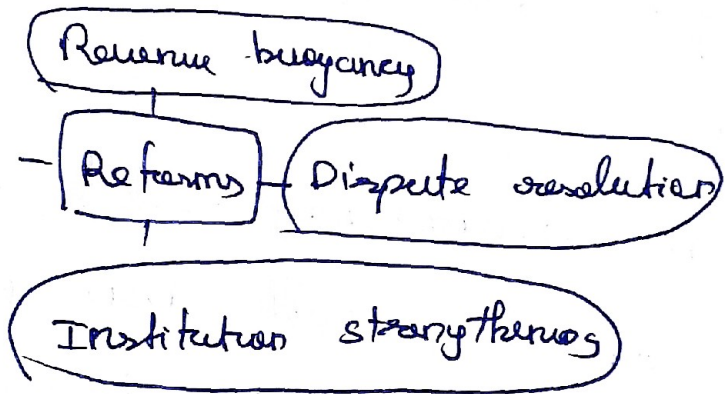 Revenue buoyancy
Reforms
Dispute resolution
Institution strengthening